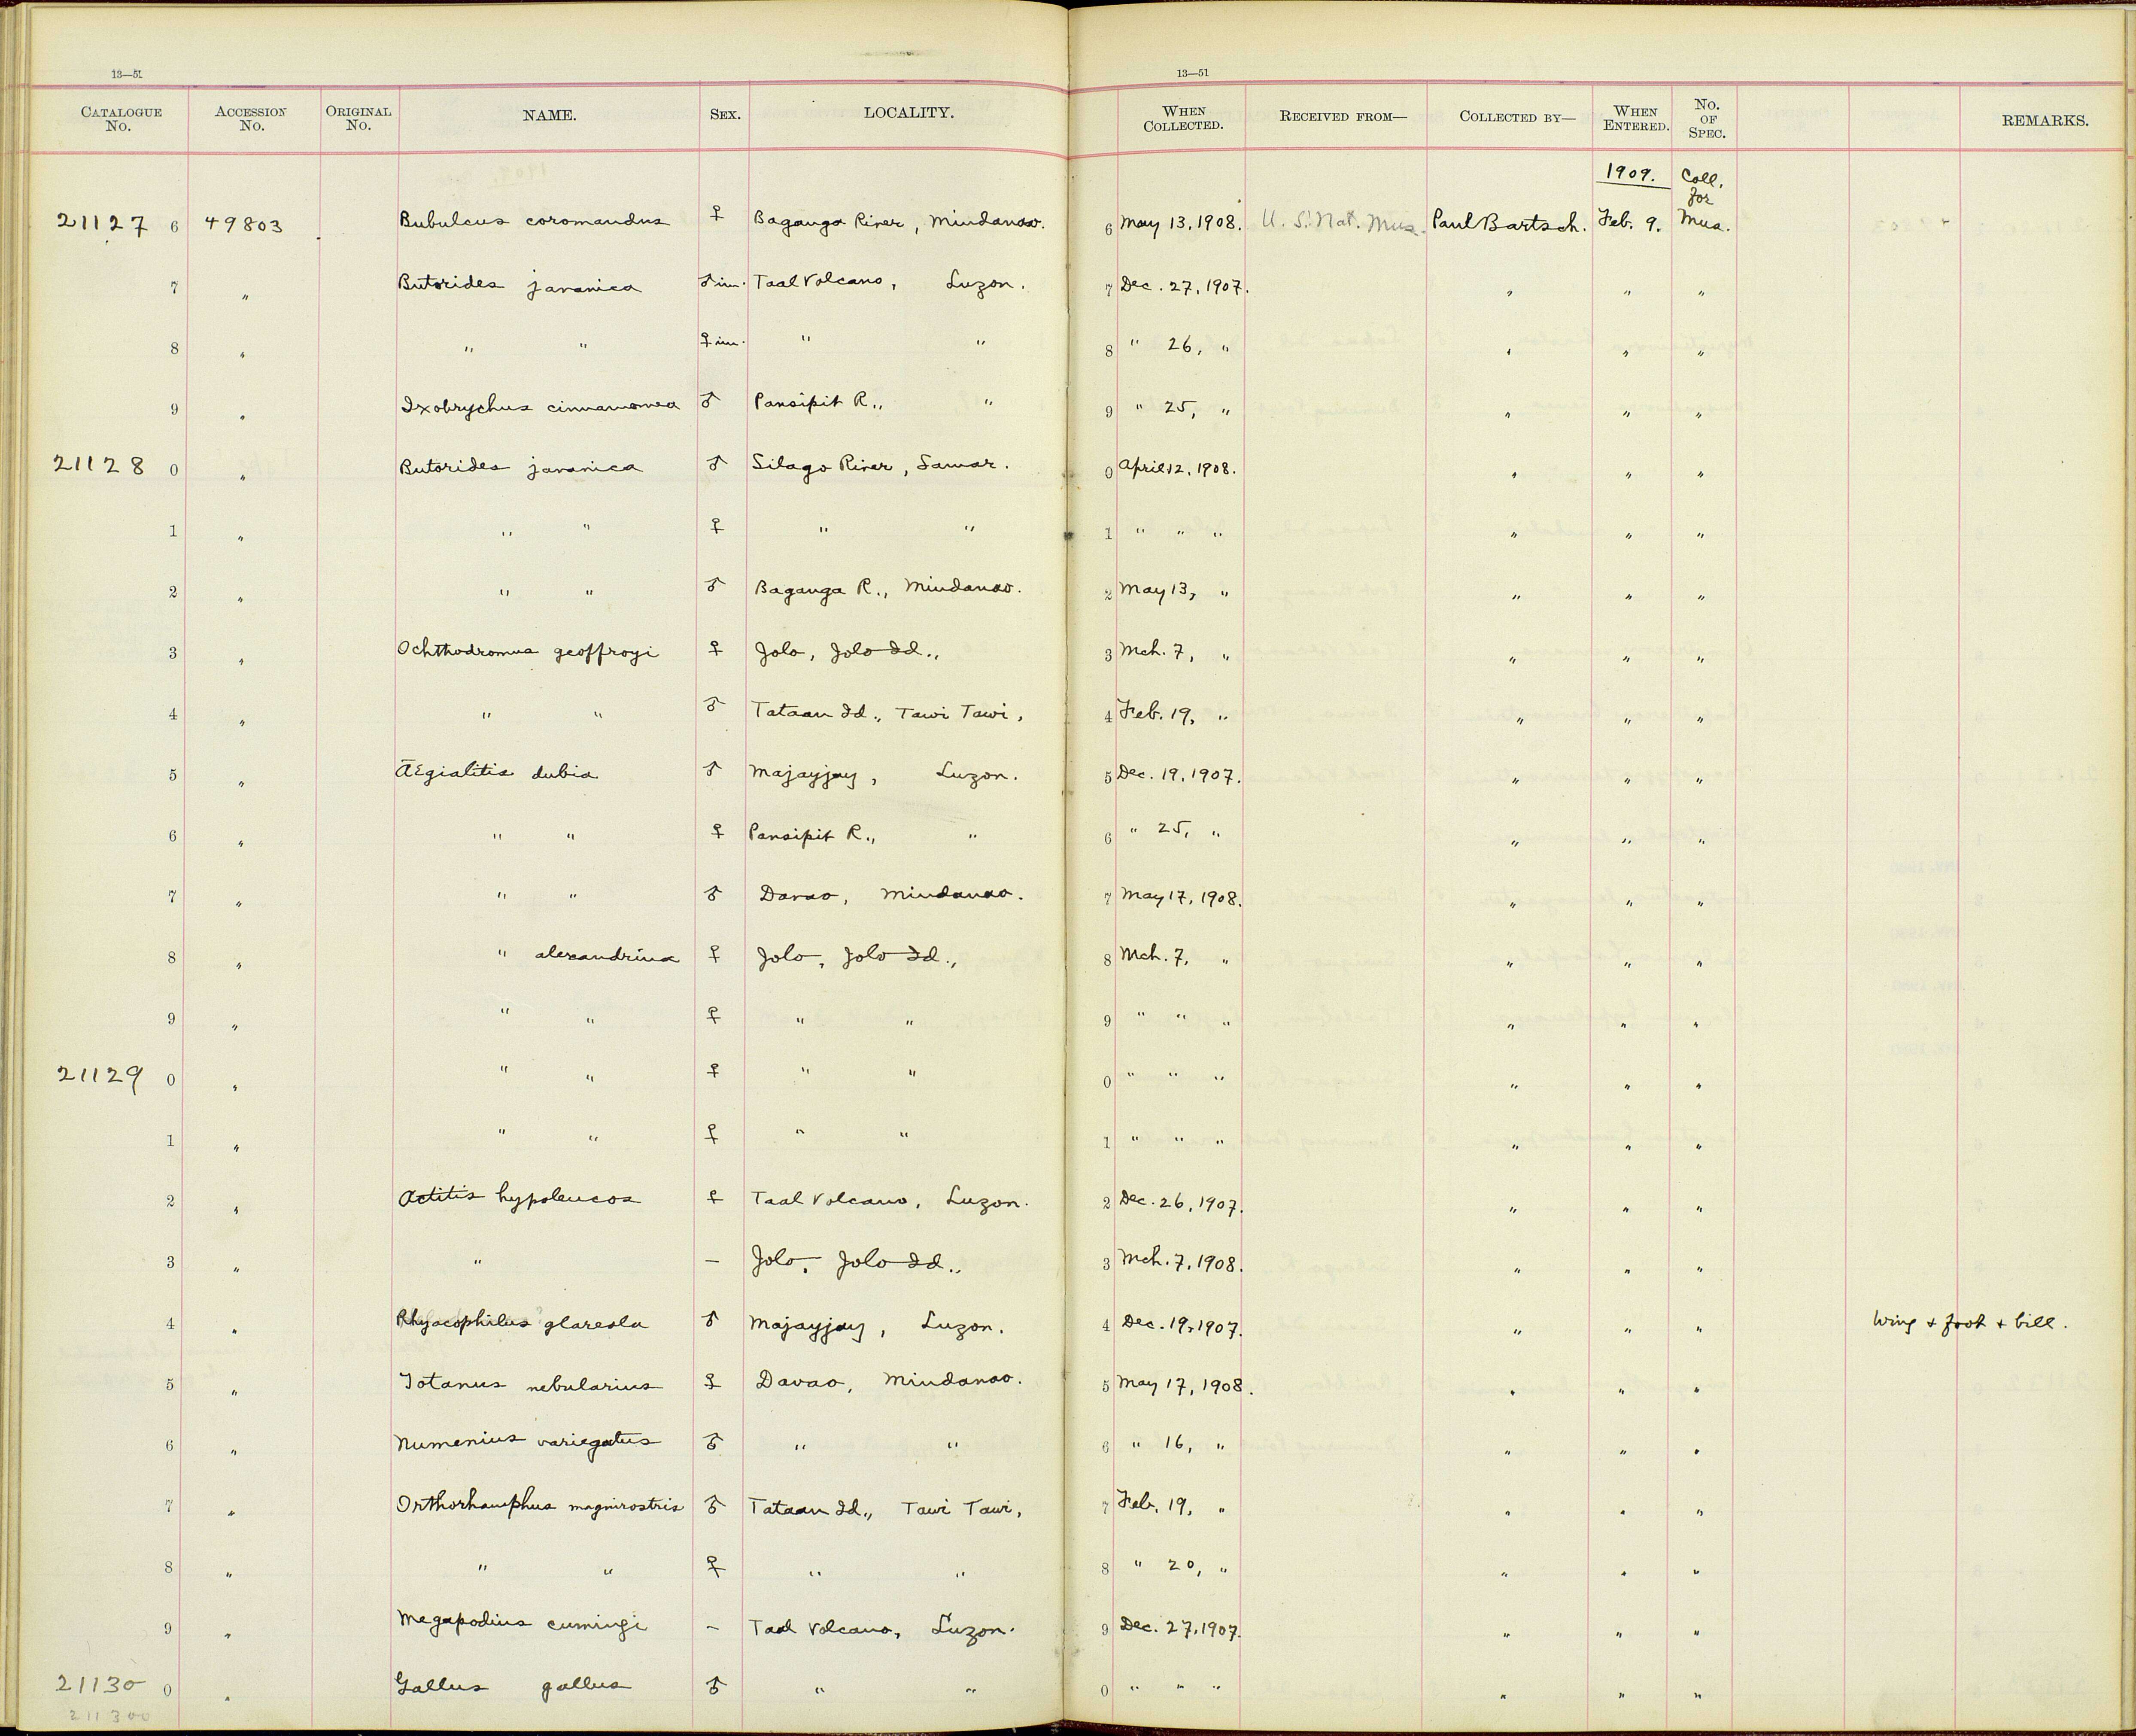 13—51 13—51
CATALOGUE No. ACCESSION No. ORIGINAL No. NAME. SEX. LOCALITY. WHEN COLLECTED. RECEIVED FROM— COLLECTED BY— WHEN ENTERED. No. OF SPEC. REMARKS.
1909. Coll. for
21127 6 49803 Bubulcus coromandus ♀ Baganga River, Mindanao. 6 May 13, 1908. U. S. Nat. Mus. Paul Bartsch. Feb. 9. Mus.
7 " Butorides javanica ♂ im. Taal Volcano, Luzon. 7 Dec. 27, 1907. " " "
8 " " " ♀ im. " " 8 " 26, " " " "
9 " Ixobrychus cinnamomea ♂ Pansipit R., " 9 " 25, " " " "
21128 0 " Butorides javanica ♂ Silago River, Samar. 0 April 12, 1908. " " "
1 " " " ♀ " " 1 " " " " " "
2 " " " ♂ Baganga R., Mindanao. 2 May 13, " " " "
3 " Ochthodromus geoffroyi ♀ Jolo, Jolo Id., 3 Mch. 7, " " " "
4 " " " ♂ Tataan Id., Tawi Tawi, 4 Feb. 19, " " " "
5 " Ægialitis dubia ♂ Majayjay, Luzon. 5 Dec. 19, 1907. " " "
6 " " " ♀ Pansipit R., " 6 " 25, " " " "
7 " " " ♂ Davao, Mindanao. 7 May 17, 1908. " " "
8 " " alexandrina ♀ Jolo, Jolo Id., 8 Mch. 7, " " " "
9 " " " ♀ " " 9 " " " " " "
21129 0 " " " ♀ " " 0 " " " " " "
1 " " " ♀ " " 1 " " " " " "
2 " Actitis hypoleucos ♀ Taal Volcano, Luzon. 2 Dec. 26, 1907. " " "
3 " " – Jolo, Jolo Id., 3 Mch. 7, 1908. " " "
4 " Rhyacophilus glareola ♂ Majayjay, Luzon. 4 Dec. 19, 1907. " " " Wing + foot + bill.
5 " Totanus nebularius ♀ Davao, Mindanao. 5 May 17, 1908. " " "
6 " Numenius variegatus ♂ " " 6 " 16, " " " "
7 " Orthorhamphus magnirostris ♂ Tataan Id., Tawi Tawi, 7 Feb. 19, " " " "
8 " " " ♀ " " 8 " 20, " " " "
9 " Megapodius cumingi – Taal Volcano, Luzon. 9 Dec. 27, 1907. " " "
21130 0 " Gallus gallus ♂ " " 0 " " " " " "
211300